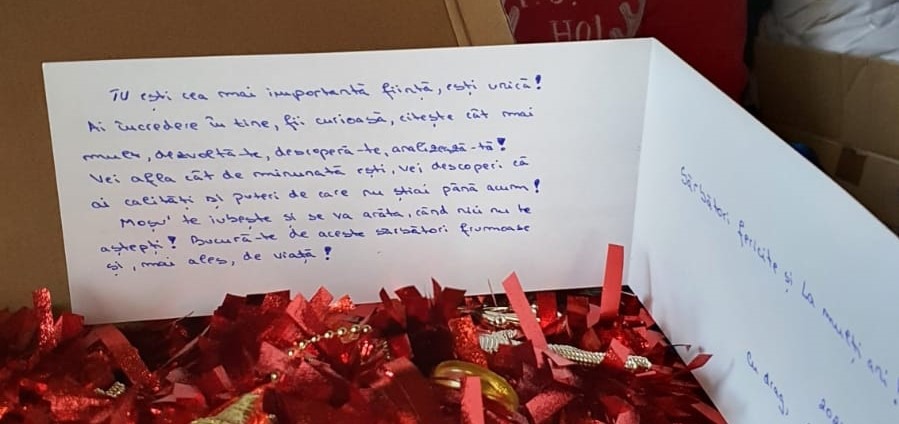 TU ești cea mai importantă ființă, ești unică!
Ai încredere în tine, fii curioasă, citește cât mai
mult, dezvoltă-te, descoperă-te, analizează-tă!
Vei afla cât de minunată ești, vei descoperi că
ai calități și puteri de care nu știai până acum!
Moșu' te iubește și se va arăta, când nici nu te
aștepți! Bucură-te de aceste sărbători frumoase
și, mai ales, de viață!
Sărbători fericite și La mulți ani!
Cu drag,
HO!